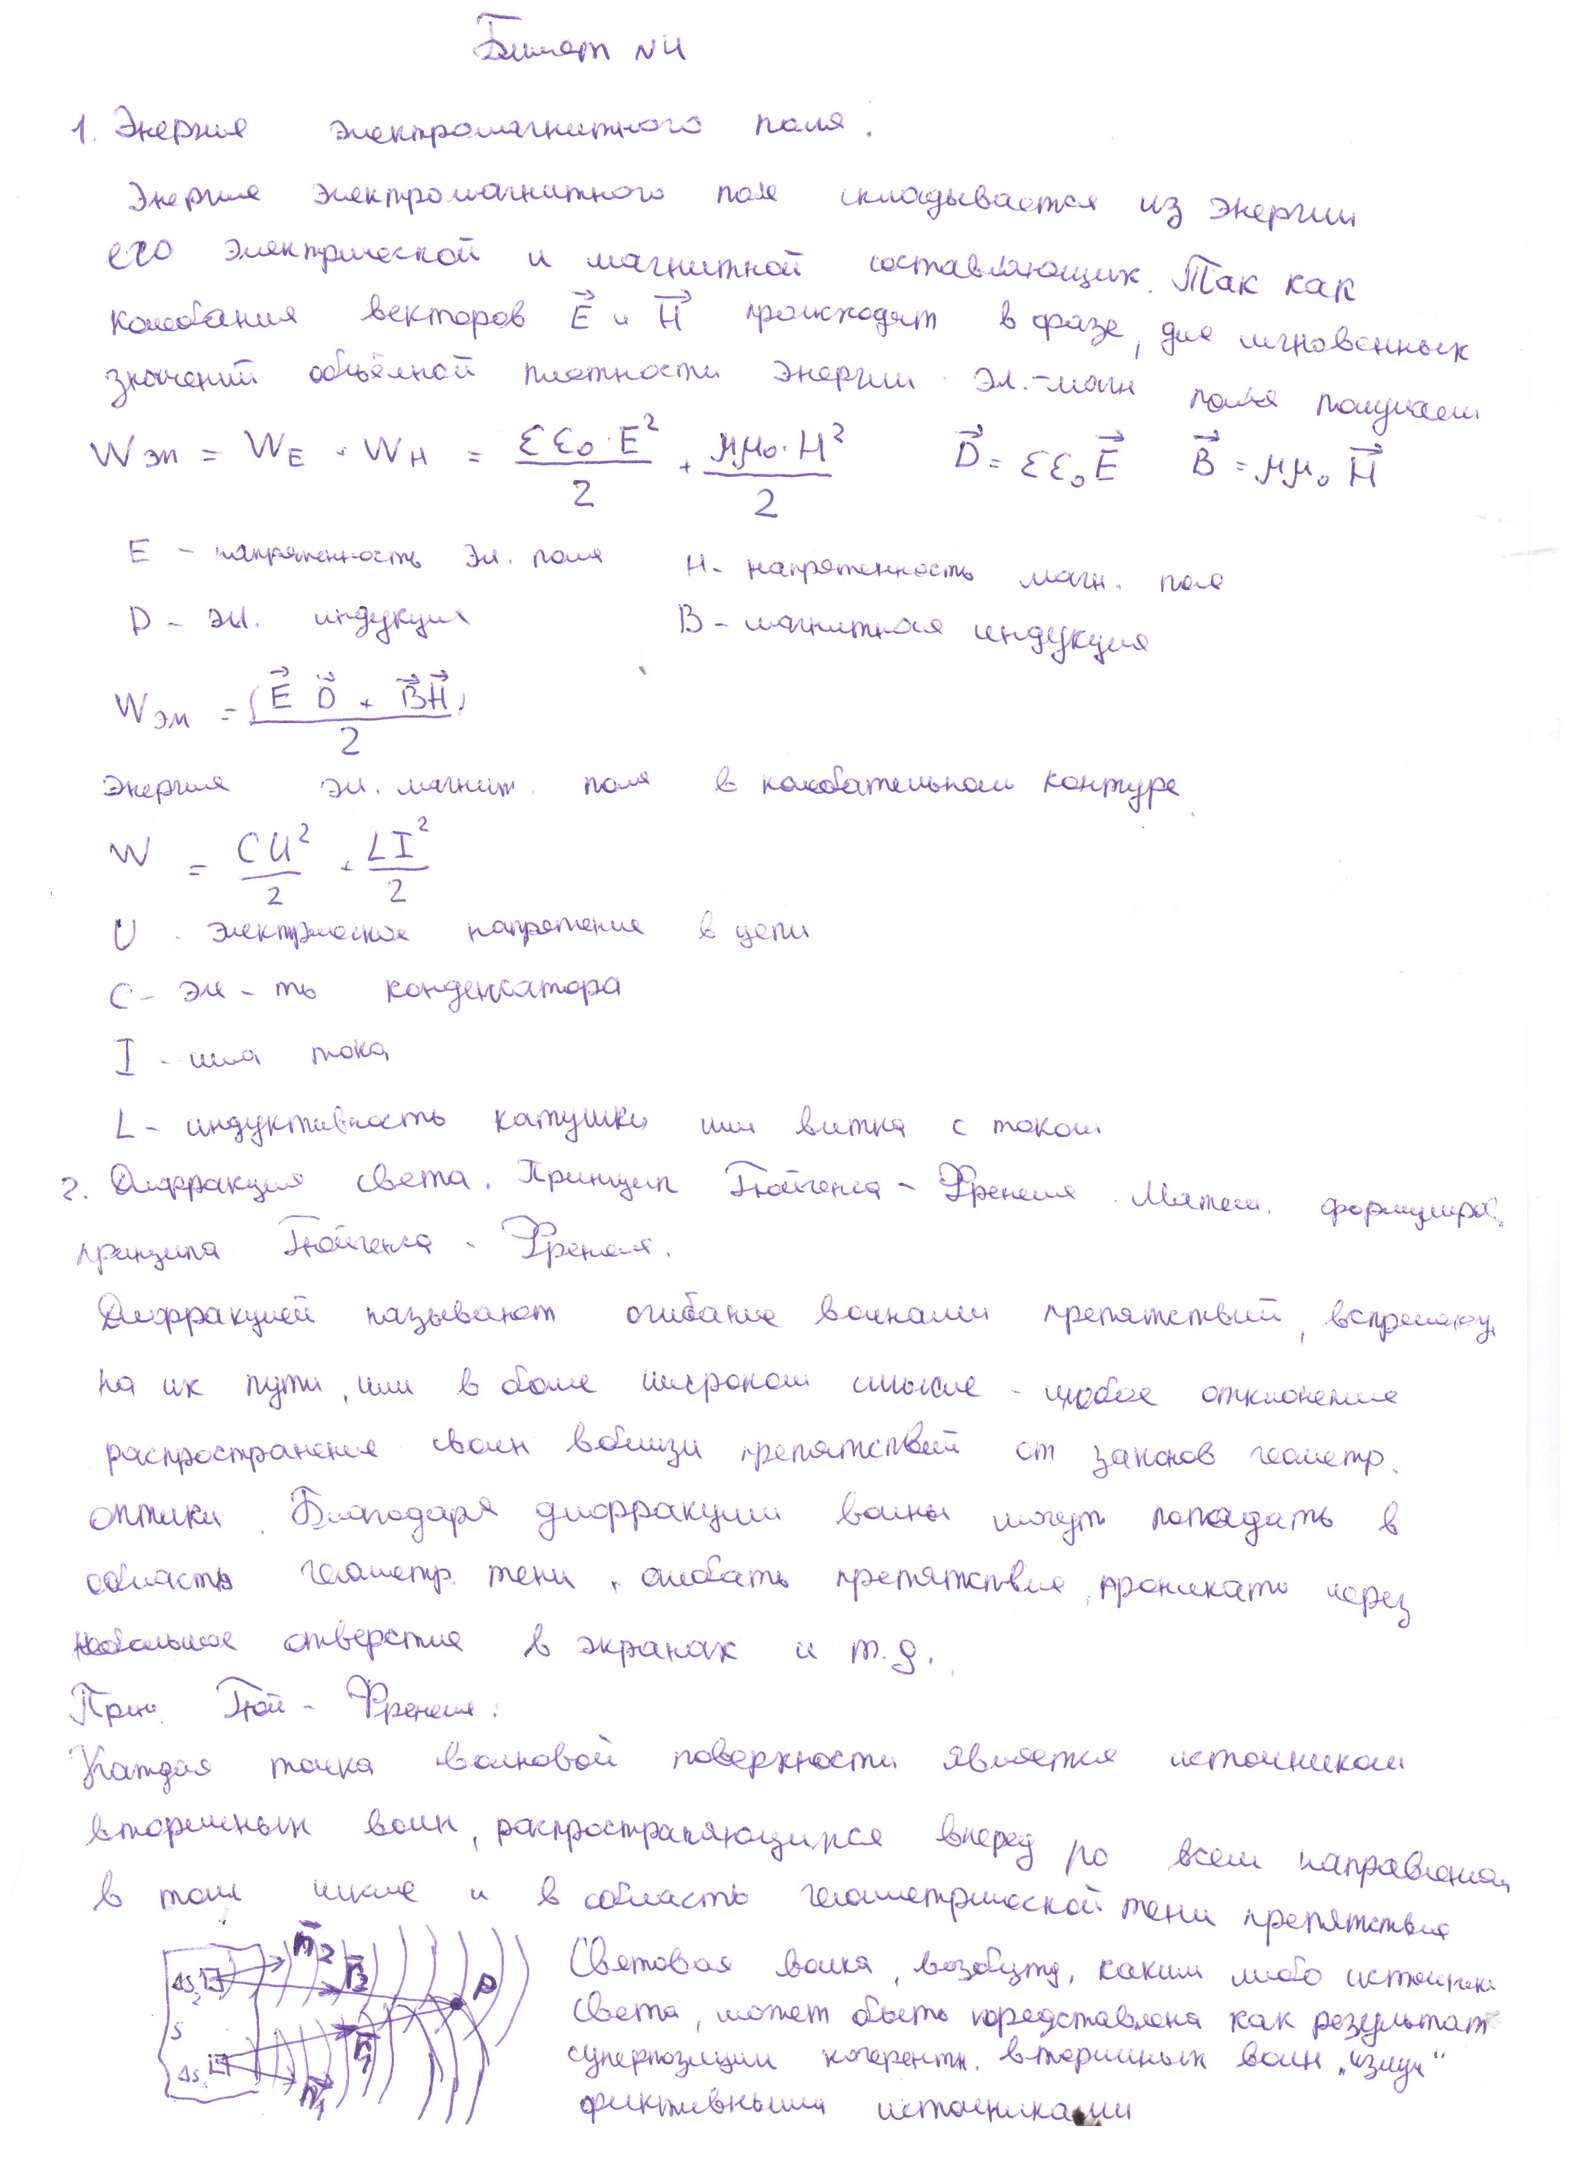 Билет №4
1. Энергия электромагнитного поля.
Энергия электромагнитного поля складывается из энергии
его электрической и магнитной составляющих. Так как
колебания векторов E⃗ и H⃗ происходят в фазе, для мгновенных
значений объёмной плотности энергии эл.-магн поля получаем
Wэм = WE + WH = εε₀·E²/2 + μμ₀·H²/2 D⃗ = εε₀E⃗ B⃗ = μμ₀H⃗
E - напряженность эл. поля H - напряженность магн. поля
D - эл. индукция B - магнитная индукция
Wэм = (E⃗ D⃗ + B⃗H⃗)/2
Энергия эл. магнит. поля в колебательном контуре
W = CU²/2 + LI²/2
U - электрическое напряжение в цепи
C - эл-ть конденсатора
I - сила тока
L - индуктивность катушки или витка с током
2. Дифракция света. Принцип Гюйгенса - Френеля. Матем. формулиров.
принципа Гюйгенса - Френеля.
Дифракцией называют огибание волнами препятствий, встречающ.
на их пути, или в более широком смысле - любое отклонение
распространение волн вблизи препятствий от законов геометр.
оптики. Благодаря дифракции волны могут попадать в
область геометр. тени, огибать препятствие, проникать через
небольшое отверстие в экранах и т.д.
Прин. Гюй - Френеля:
Каждая точка волновой поверхности является источником
вторичных волн, распространяющихся вперед по всем направлениям,
в том числе и в область геометрической тени препятствия
ΔS₂ n⃗₂ r⃗₂ P
S
ΔS₁ r⃗₁ n⃗₁
Световая волна, возбужд. каким либо источник
света, может быть представлена как результат
суперпозиции когерентн. вторичных волн „излуч“
фиктивными источниками